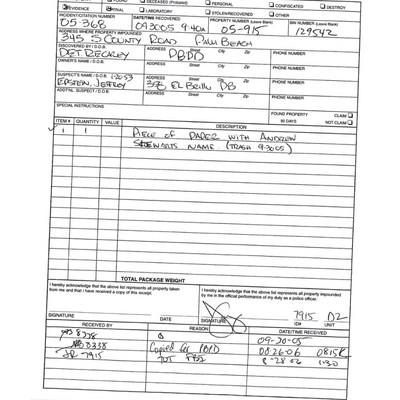 FOUND DECEASED (Probated) PERSONAL CONFISCATED DESTROY
EVIDENCE RENTAL LABORATORY STOLEN/RECOVERED OTHER
INCIDENT/CITATION NUMBER DATE/TIME RECOVERED PROPERTY NUMBER (Leave Blank) BIN NUMBER (Leave Blank)
05-368 9:40A 05-915 129542
ADDRESS WHERE PROPERTY IMPOUNDED Street City Zip
345 S COUNTY ROAD PALM BEACH
DISCOVERED BY / D.O.B. ADDRESS Street City Zip PHONE NUMBER
DET. RECAREY PBPD
OWNER'S NAME / D.O.B. ADDRESS Street City Zip PHONE NUMBER
SUSPECT'S NAME / D.O.B. 1-20-53 ADDRESS Street City Zip PHONE NUMBER
EPSTEIN, JEFFREY 358 EL Brillo PB
ADD'TNL. SUSPECT / D.O.B. ADDRESS Street City Zip PHONE NUMBER
SPECIAL INSTRUCTIONS FOUND PROPERTY CLAIM
90 DAYS NOT CLAIM
ITEM # QUANTITY VALUE DESCRIPTION
1 1 PIECE OF PAPER WITH ANDREW
STEWARTS NAME (TRASH 9-30-05)
TOTAL PACKAGE WEIGHT
I hereby acknowledge that the above list represents all property taken
from me and that I have received a copy of this receipt.
I hereby acknowledge that the above list represents all property impounded
by me in the official performance of my duty as a police officer.
7915 D2
SIGNATURE DATE SIGNATURE ID# UNIT
RECEIVED BY REASON DATE/TIME RECEIVED
8338 09-30-05
8338 Copied for PBPD 08-26-06 0815
7915 1430